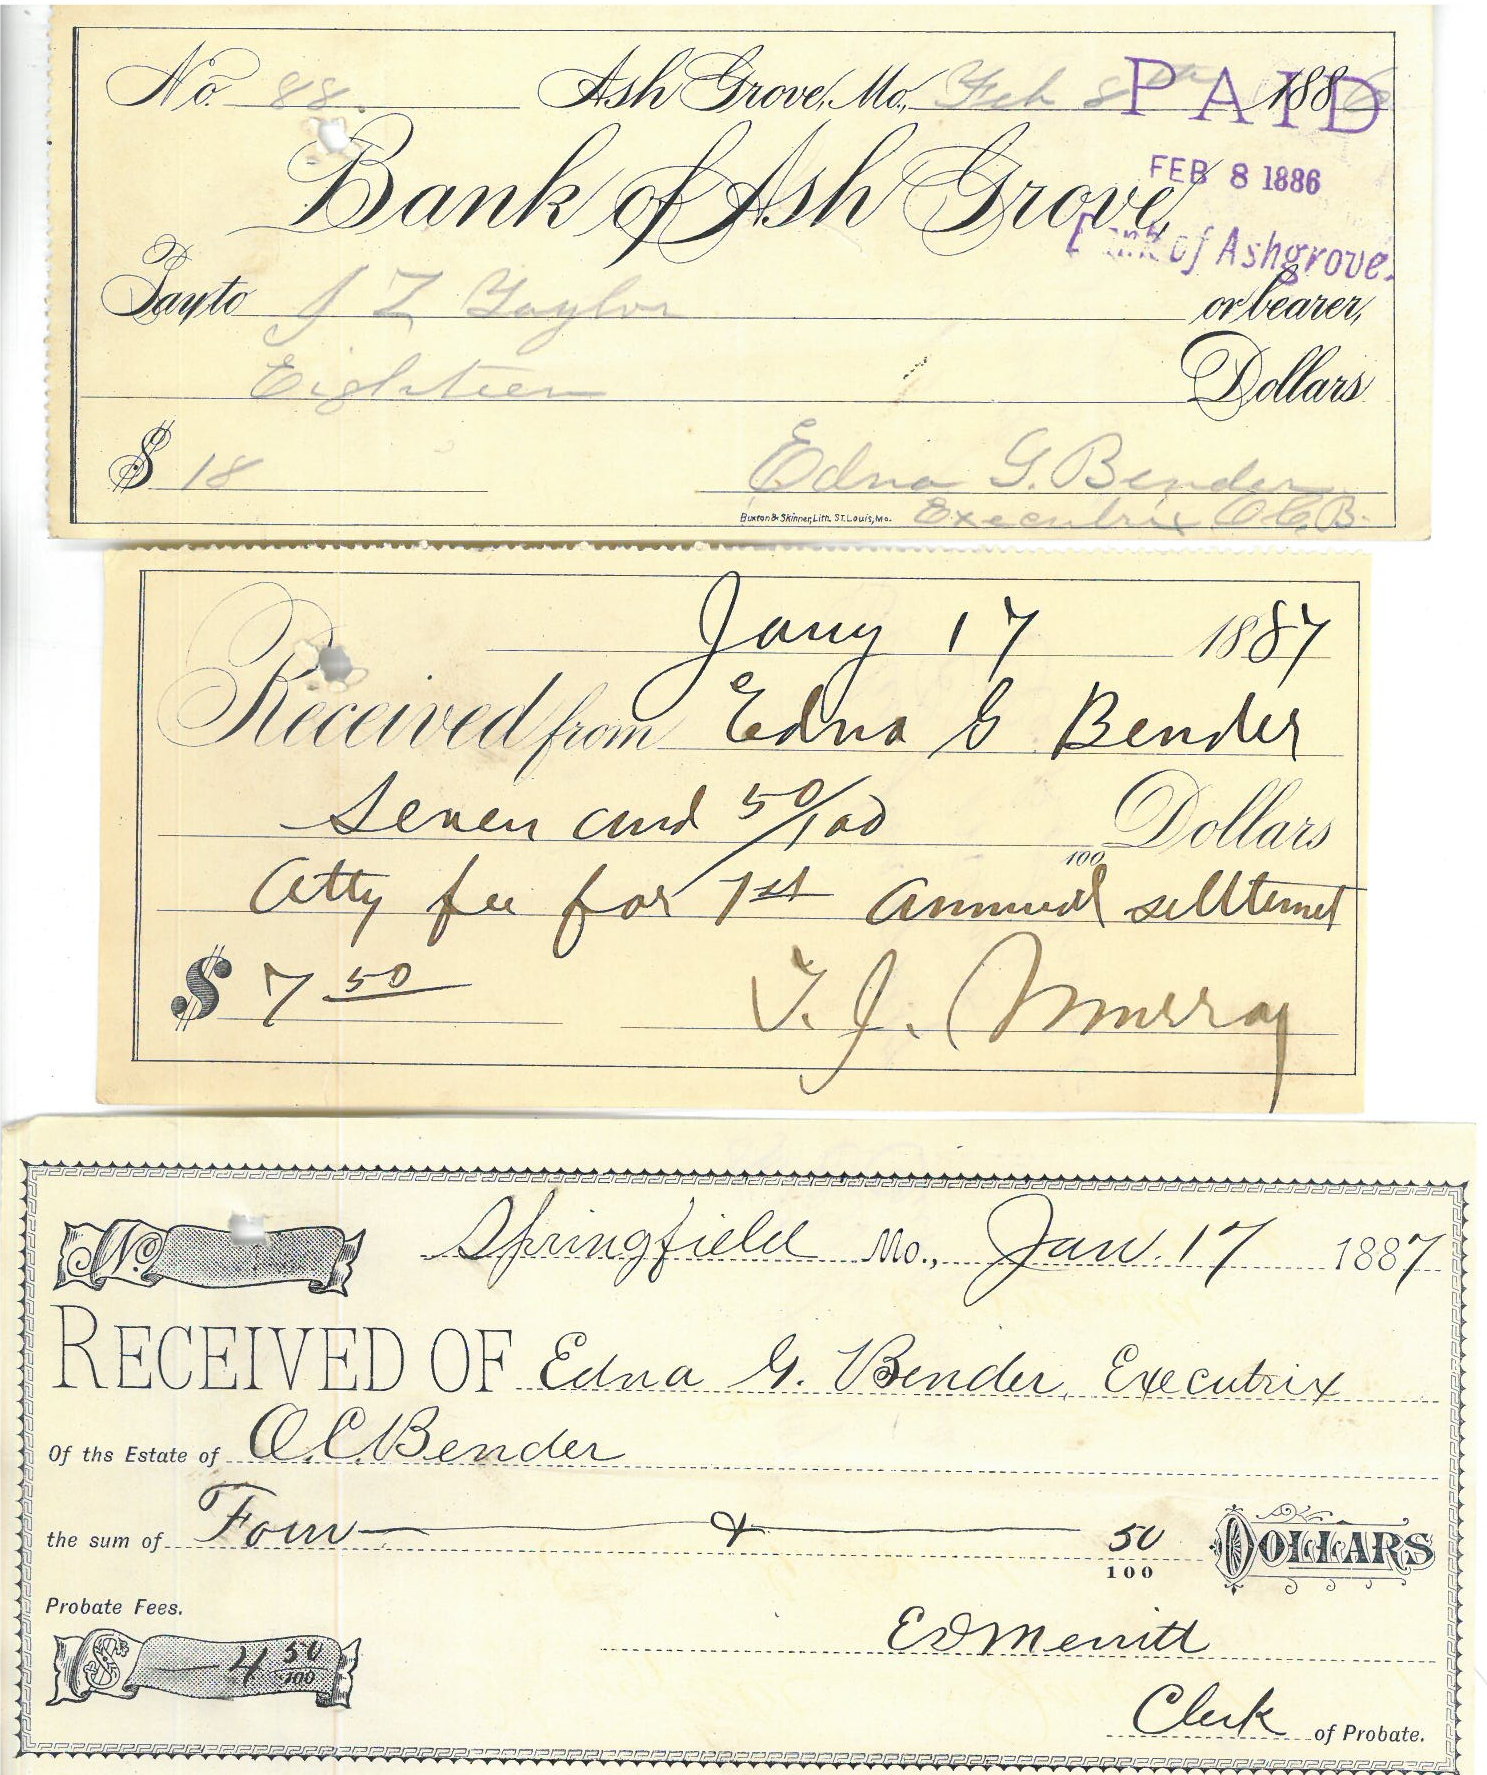 No. 88. Ash Grove, Mo., Feb 8th 1886
PAID
FEB 8 1886
Bank of Ash Grove,
Bank of Ashgrove.
Pay to J Z Taylor or bearer,
Eighteen Dollars
$ 18 Edna G. Bender
Buxton & Skinner, Lith. St. Louis, Mo. Executrix O.C.B.
Jany 17 1887
Received from Edna G Bender
Seven and 50/100 Dollars
100
Atty fee for 1st annual settlemet
$ 7 50 T. J. Murray
No. Springfield Mo., Jan. 17 1887
RECEIVED OF Edna G. Bender, Executrix
Of ths Estate of O.C. Bender
the sum of Four & 50/100 DOLLARS
Probate Fees.
$ 4 50/100 E D Merritt
Clerk of Probate.